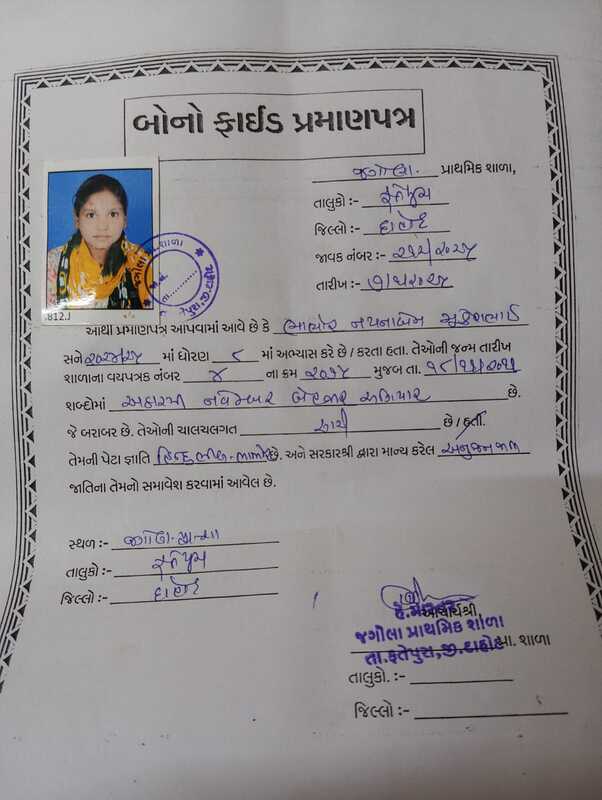 બોનો ફાઈડ પ્રમાણપત્ર
જગોલા પ્રાથમિક શાળા,
તાલુકો :- ફતેપુરા
જિલ્લો :- દાહોદ
જાવક નંબર :-
તારીખ :-
.812.J
આથી પ્રમાણપત્ર આપવામાં આવે છે કે ભાભોર નયનાબેન મુકેશભાઈ
સને માં ધોરણ ૮ માં અભ્યાસ કરે છે / કરતા હતા. તેઓની જન્મ તારીખ
શાળાના વયપત્રક નંબર ૪ ના ક્રમ મુજબ તા. ૧૮/૧૧/૨૦૧૧
શબ્દોમાં અઢારમી નવેમ્બર બેહજાર અગિયાર છે.
જે બરાબર છે. તેઓની ચાલચલગત સારી છે / હતી.
તેમની પેટા જ્ઞાતિ હિન્દુ ભીલ છે. અને સરકારશ્રી દ્વારા માન્ય કરેલ
જાતિના તેમનો સમાવેશ કરવામાં આવેલ છે.
સ્થળ :- જગોલા
તાલુકો :- ફતેપુરા
જિલ્લો :- દાહોદ
આચાર્યશ્રી,
જગોલા પ્રાથમિક શાળા
પ્રા. શાળા
તા.ફતેપુરા,જી.દાહોદ
તાલુકો. :-
જિલ્લો :-